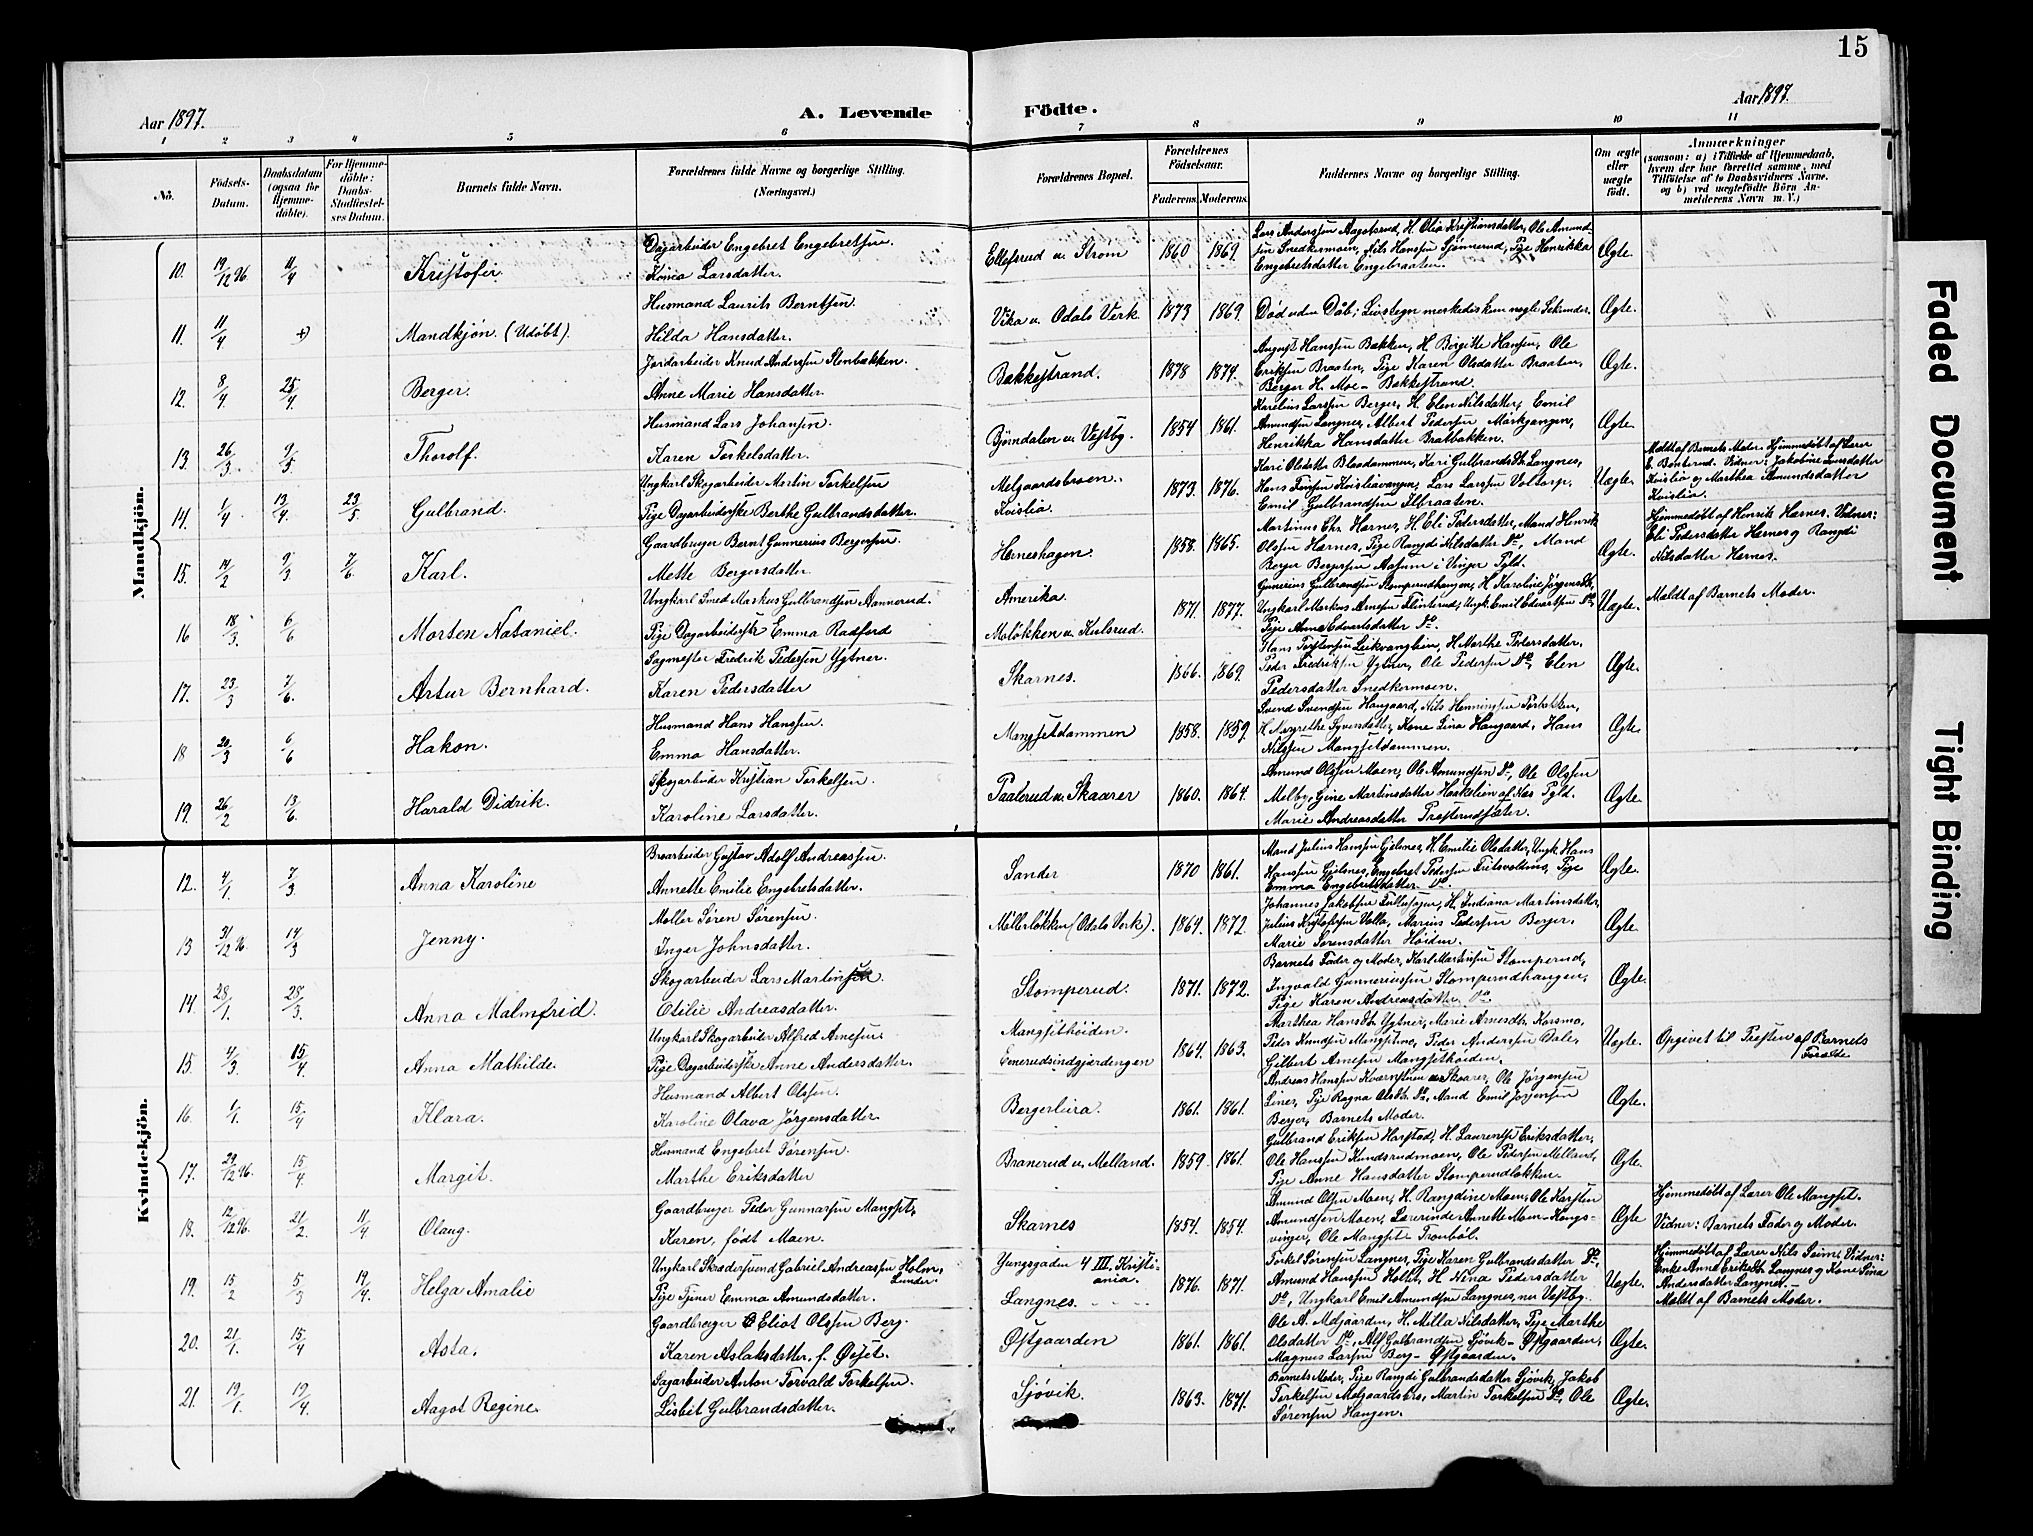 15
Aar 1897.
A. Levende
Födte.
Aar 1897.
1 2 3 4 5 6 7 8 9 10 11
No.
Födsels-
Datum.
Daabsdatum
(ogsaa for
Hjemme-
döbte).
For Hjemme-
döbte:
Daabs-
Stadfæstel-
ses Datum.
Barnets fulde Navn.
Forældrenes fulde Navne og borgerlige Stilling.
(Næringsvei.)
Forældrenes Bopæl.
Forældrenes
Födselsaar.
Faderens.
Moderens.
Faddernes Navne og borgerlige Stilling.
Om ægte
eller
uægte
födt.
Anmærkninger
(saasom: a) i Tilfælde af Hjemmedaab,
hvem der har forrettet samme, med
Tilföielse af to Daabsvidners Navne,
og b) ved uægtefödte Börn An-
melderens Navn m. V.)
Mandkjön.
10. 19/12 96 11/4 Kristofer.
Dagarbeider Engebret Engebretsen.
Larsdatter.
Ellefsrud u. Strøm 1860 1869.
Lars Anderssen Aagotsrud, H. Olia Kristiansdatter, Ole Amund-
sen Snedkermoen, Nils Hanssen Sjønnerud, Pige Henrikka
Engebretsdatter Engebraaten.
Ægte.
11. 11/4 +) Mandkjøn. (Udøbt).
Husmand Laurits Berntsen
Hilda Hansdatter.
Vika u. Odals Verk 1873 1869.
Død uden Dåb; Livstegn merkedes kun nogle Sekunder.
Ægte.
12. 8/4 25/4 Berger.
Jordarbeider Knud Anderssen Stenbakken.
Anne Marie Hansdatter.
Bakkestrand. 1878 1874.
August Hanssen Bakken, H. Birgitte Hanssen, Ole
Erikssen Braaten, Pige Karen Olsdatter Braaten,
Berger H. Moe - Bakkestrand.
Ægte.
13. 26/3 9/5 Thorolf.
Husmand Lars Johansen.
Karen Torkelsdatter.
Bjørndalen u. Vestby. 1854 1861.
Karelius Larssen Berger, H. Elen Nilsdatter, Emil
Amundsen Langnes, Albert Pederssen Mørkgangen,
Henrikka Hansdatter Bratbakken.
Ægte.
14. 1/4 13/4 23/5 Gulbrand.
Ungkarl Skogarbeider Martin Torkelsen
Pige Dagarbeiderske Berthe Gulbrandsdatter.
Melgaardsbroen.
Kvislia. 1873. 1876.
Kari Olsdatter Blaadammen, Kari Gulbrandsdt. Langnes,
Hans Kvisliavangen, Lars Larssen Voltorp,
Emil Gulbrandsen Ilbraaten.
Uægte.
Meldt af Barnets Moder. Hjemmedøbt af Lærer
E. Bonserud. Vidner: Jakobine Arnesdatter
Kvislia og Marthea Amundsdatter
Kvislia.
15. 14/2 9/3 7/6 Karl.
Gaardbruger Bernt Gunnerius Bergersen.
Mette Bergersdatter.
Herneshagen. 1858. 1865.
Martinus Chr. Hernes, H. Eli Pedersdatter, Mand Henrik
Olssen Hernes, Pige Rangdi Nilsdatter Do, Mand
Berger Bergersen Aasum i Vinger Pgld.
Ægte.
Hjemmedøbt af Henrik Hernes. Vidner:
Eli Pedersdatter Hernes og Rangdi
Nilsdatter Hernes.
16 18/3 6/6 Morten Nataniel.
Ungkarl Smed Markus Gulbrandsen Aannerud.
Pige Dagarbeiderske Emma Radford
Amerika.
Moløkken u. Kulsrud. 1871 1877.
Gunerius Gulbrandsen Stomperudhaugen, H. Karoline Jørgensdt.
Ungkarl Markus Arnesen Flinterud, Ungk. Emil Edvartsen Do,
Pige Anna Edvartsdatter Do.
Uægte.
Meldt af Barnets Moder.
17. 23/3 7/6 Artur Bernhard.
Sagmester Fredrik Pedersen Ygtner.
Karen Pedersdatter
Skarnes. 1866. 1869.
Hans Torstensen Leikvanghein, H. Marthe Pedersdatter,
Peder Fredriksen Ygtner, Ole Pedersen Do, Elen
Pedersdatter Snedkermoen.
Ægte
18 20/3 6/6 Hakon.
Husmand Hans Hanssen.
Emma Hansdatter.
Mangsetdammen 1858. 1859.
Svend Svendsen Haugaard, Nils Henningsen
H. Margrethe Syversdatter, Kone Lina Haugaard, Hans
Nilssen Mangsetdammen.
Ægte.
19. 26/2 13/6 Harald Didrik.
Skogarbeider Kristian Torkelsen.
Karoline Larsdatter.
Paalerud u. Skaarer 1860. 1864.
Amund Olssen Moen, Ole Amundsen Do, Ole Olssen
Melby, Gine Martinsdatter Haskelien af Nes Pgld.
Marie Andreasdatter Presterudsæter.
Ægte.
Kvindekjön.
12. 4/1 7/3 Anna Karoline
Broarbeider Gustav Adolf Andreassen.
Annette Emilie Engebretsdatter.
Sander 1870 1861.
Mand Julius Hanssen Gjelsnes, H. Emilie Olsdatter, Ungk. Hans
Hanssen Gjelsnes, Engebret Pedersen Pige
Emma Engebretsdatter Do.
Ægte.
13 31/12 96 14/3 Jenny.
Møller Søren Sørensen.
Inger Johnsdatter.
Møllerløkken (Odals Verk). 1864. 1872.
Johannes Jakobsen H. Indiana Martinsdatter,
Julius Kristofersen Volla, Marius Pedersen Berger,
Marie Sørensdatter Høiden.
Ægte.
14. 28/1 28/3 Anna Malmfrid.
Skogarbeider Lars Martinsen
Otilie Andreasdatter.
Stomperud. 1871. 1872.
Barnets Fader og Moder, Karl Martinsen Stomperud,
Ingvald Gunneriussen Stomperudhaugen,
Pige Karen Andreasdatter Do
Ægte.
15. 4/3 15/4 Anna Mathilde.
Ungkarl Skogarbeider Alfred Arnesen.
Pige Dagarbeiderske Anne Andersdatter.
Mangsethøiden.
Emerudsindgjærdengen 1864. 1863.
Marthea Hansdt. Ygtner, Marie Arnesdt. Korsmo,
Peder Knudsen Mangsetmo, Peder Andersen Dale,
Gilbert Arnesen Mangsethøiden.
Uægte.
Opgivet til Presten af Barnets
Forælde
16. 1/1 15/4 Klara.
Husmand Albert Olssen.
Karoline Olava Jørgensdatter.
Bergerlura. 1861. 1861.
Andreas Hanssen Kværnstuen u. Skaarer, Ole Jørgensen
Liner, Pige Ragna Olsdt. Do, Mand Emil Jørgensen
Berger, Barnets Moder.
Ægte.
17. 29/12 96. 15/4 Margit.
Husmand Engebret Sørensen.
Marthe Eriksdatter
Branerud u. Melland. 1859. 1861.
Gulbrand Eriksen Harstad, H. Laurentse Eriksdatter,
Ole Hanssen Kundsrudmoen, Ole Pedersen Melland,
Pige Anne Hansdatter Stomperudløkken.
Ægte.
18. 12/12 96. 21/2 11/4 Olaug.
Gaardbruger Peder Gunnarsen Mangset,
Karen, født Moen.
Skarnes 1854. 1854.
Amund Olsen Moen, H. Rangdine Moen, Ole Karsten
Amundsen Moen, Lærerinde Annette Moen - Kongs-
vinger, Ole Mangset - Tronbøl.
Ægte
Hjemmedøbt af Lærer Ole Mangset.
Vidner: Barnets Fader og Moder.
19. 15/2 5/3 19/4 Helga Amalie
Ungkarl Skrædersvend Gabriel Andreassen Holm,
Lunder.
Pige Tjener Emma Amundsdatter.
Yungsgaden 4 III. Kristi-
ania.
Langnes. 1876. 1871.
Torkel Sørensen Langnes, Pige Karen Gulbrandsdatter Do,
Amund Hanssen Holtet, H. Nina Pedersdatter
Do, Ungkarl Emil Amundsen Langnes, nu Vestby.
Uægte.
Hjemmedøbt af Lærer Nils Seim, Vidner:
Enke Anne Eriksdt. Langnes og Kone Lina
Andersdatter Langnes.
Meldt af Barnets Moder.
20. 21/1 15/4 Asta.
Gaardbruger Eliot Olssen Berg.
Karen Aslaksdatter, f. Øiset.
Østgaarden 1861. 1861.
Ole A. Melgaarden, H. Milla Nilsdatter, Pige Marthe
Olsdatter Do, Alf Gulbrandsen Sjøvik - Østgaarden,
Magnus Larsen Berg - Østgaarden.
Ægte.
21. 19/1 19/4 Aagot Regine.
Sagarbeider Anton Torvald Torkelsen.
Lisbet Gulbrandsdatter.
Sjøvik. 1863. 1871.
Barnets Moder, Pige Rangdi Gulbrandsdatter Sjøvik, Jakob
Torkelsen Melgaardsbro, Martin Torkelsen Do, Ole
Sørensen Haugen.
Ægte.
Faded Document
Tight Binding